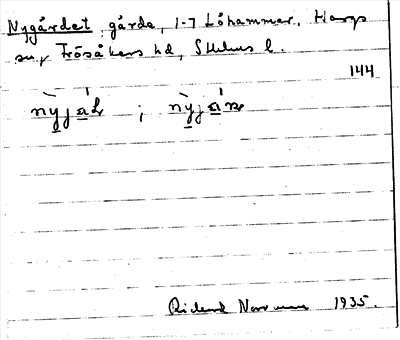 Nygårdet gårda, 1-7 Löhammar, Hargs
sn, Frösåkers hd, Sthlms l.
144
nỳjáɫ ; nỳján
Rickard Norrman 1935.